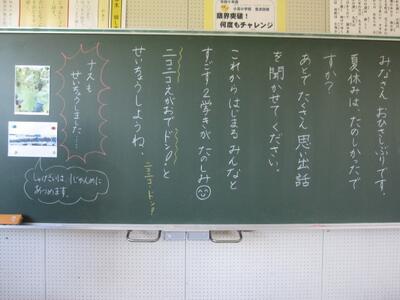 限界突破!
何度もチャレンジ
みなさん おひさしぶりです。
夏休みは、たのしかったで
すか?
あとで たくさん 思い出話
を聞かせてください。
これから はじまる みんなと
すごす2学きが たのしみ
ニコニコえがおで ドン!と
せいちょうしようね。
ニコニコ・ドン!
ナスも
せいちょうしました……
しゅくだいは 1じかんめに
あつめます。